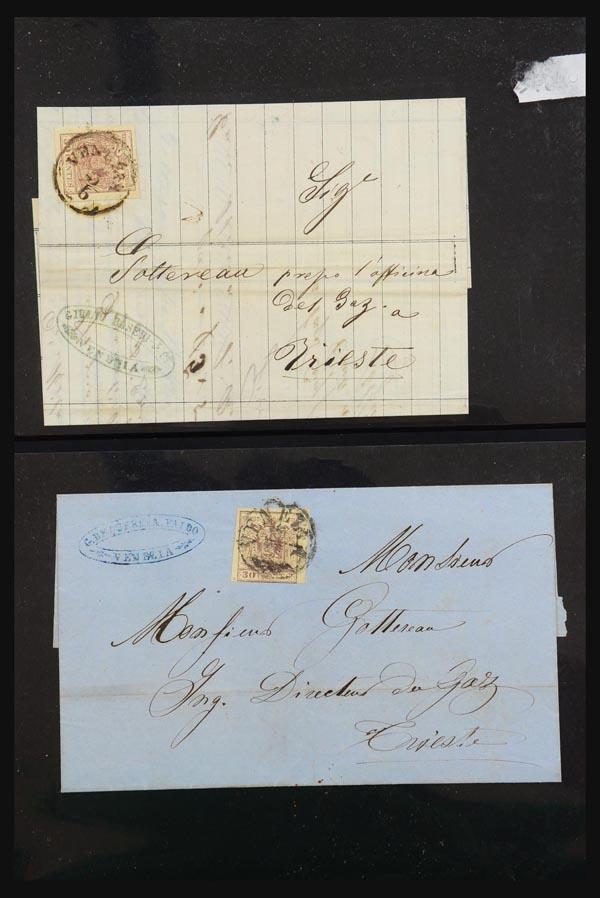 VENEZIA
26
Sigr
Gottereau prepo l'officina
del Gaz a
Trieste
GIULIO
VENEZIA
VENEZIA
30
VENEZIA
Monsieur
Monsieur Gottereau
Ing. Directeur du Gaz
Trieste